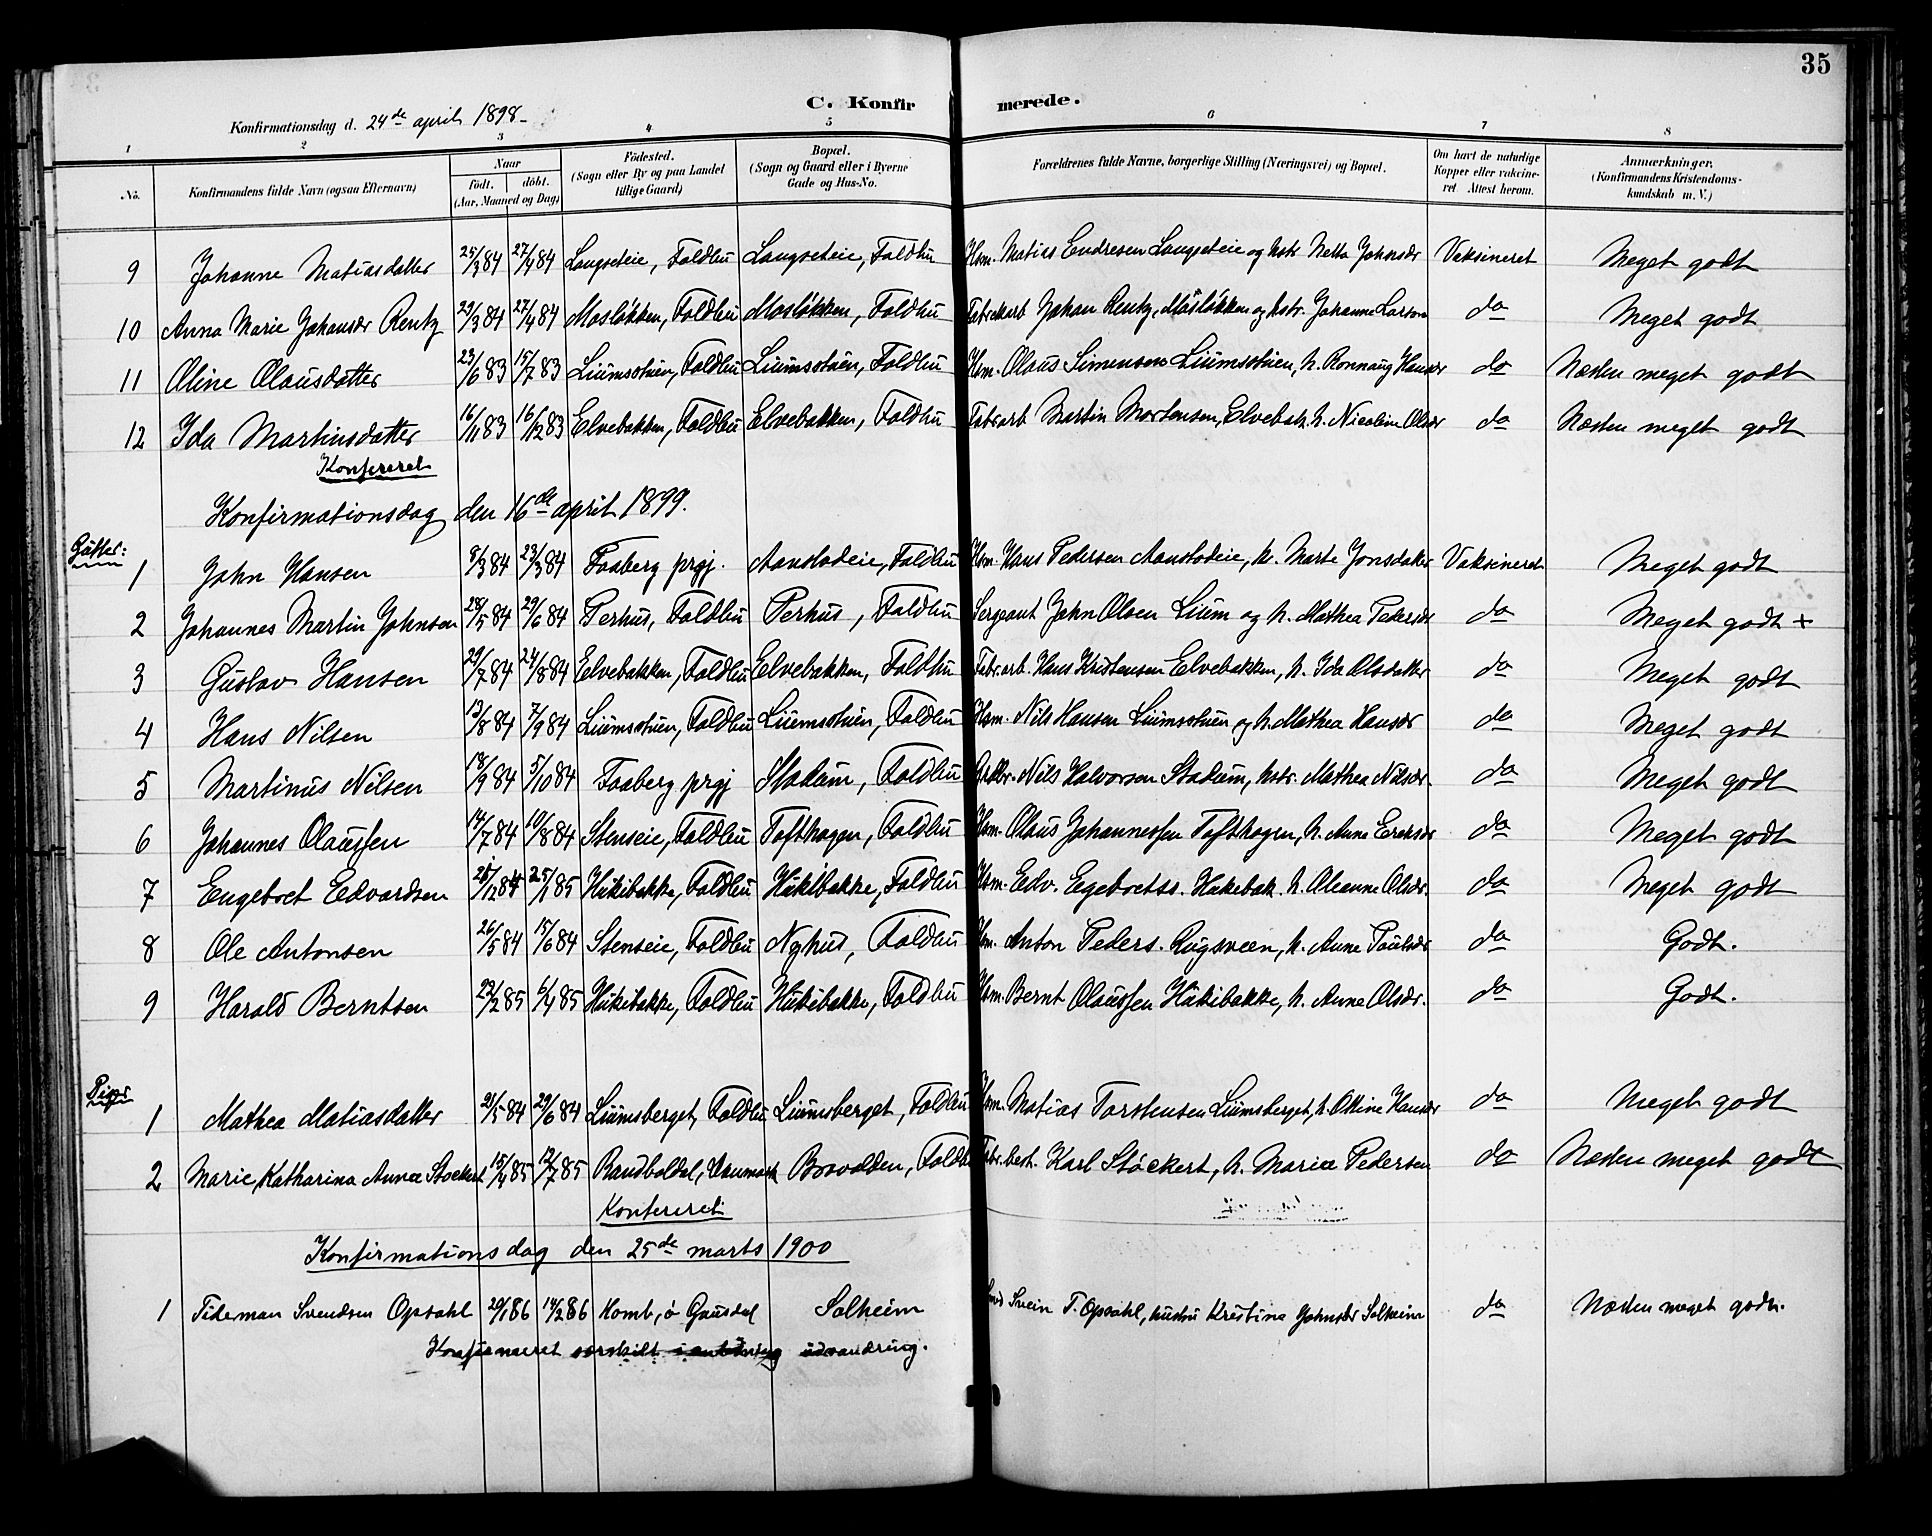 35
C. Konfirmerede.
Konfirmationsdag d. 24de april 1898.
1 2 3 4 5 6 7 8
No. Konfirmandens fulde Navn (ogsaa Efternavn) Naar födt. döbt. (Aar, Maaned og Dag) Födested. (Sogn eller By og paa Landet tillige Gaard) Bopæl. (Sogn og Gaard eller i Byerne Gade og Hus-No. Forældrenes fulde Navne, borgerlige Stilling (Næringsvei) og Bopæl. Om havt de naturlige Kopper eller vakcineret. Attest herom. Anmærkninger. (Konfirmandens Kristendomskundskab m. V.)
9 Johanne Matiasdatter 25/3 84 27/4 84 Langseteie, Foldbu Langseteie, Foldbu Hsm. Matias Endresen Langseteie og hstr. Netta Johnsdr Vaksineret Meget godt
10 Anna Marie Johansdr Rentz 29/3 84 27/4 84 Mosløkken, Foldbu Mosløkken, Foldbu Fabrikarb Johan Rentz, Mosløkken og hstr. Johanne Larson do Meget godt
11 Oline Olausdatter 23/6 83 15/7 83 Liumsstuen, Foldbu Liumsstuen, Foldbu Hsm. Olaus Simensen Liumsstuen, h. Ronnaug Hansdr do Næsten meget godt
12 Ida Martinsdatter 16/11 83 16/12 83 Elvebakken, Foldbu Elvebakken, Foldbu Fabr.arb Martin Mortensen, Elvebak. h. Nicoline Olsdr do Næsten meget godt
Konfereret
Konfirmationsdag den 16de april 1899.
Gutter:
1 John Hansen 8/3 84 23/3 84 Faaberg prgj. Aanstadeie, Foldbu Hsm. Hans Pedersen Aanstadeie, h. Marte Jonsdatter Vaksineret Meget godt
2 Johannes Martin Johnsen 28/5 84 29/6 84 Perhus, Foldbu Perhus, Foldbu Sergeant John Olsen Lium og h. Mathea Pedersdr do Meget godt +
3 Gustav Hansen 29/7 84 24/8 84 Elvebakken, Foldbu Elvebakken, Foldbu Fabr.arb. Hans Kristensen Elvebakken, h. Ida Olsdatter do Meget godt
4 Hans Nilsen 13/8 84 7/9 84 Liumsstuen, Foldbu Liumsstuen, Foldbu Hsm. Nils Hansen Liumsstuen og h. Mathea Hansdr do Meget godt
5 Martinus Nilsen 18/9 84 5/10 84 Faaberg prgj Stadum, Foldbu Nils Halvorsen Stadum, hstr. Mathea Nilsdr. do Meget godt
6 Johannes Olaussen 14/7 84 10/8 84 Stenseie, Foldbu Tofthagen, Foldbu Hsm. Olaus Johannessen Tofthagen, h. Anne Eriksdr do Meget godt
7 Engebret Edvardsen 28/12 84 25/1 85 Hukibakke, Foldbu Hukibakke, Foldbu Hsm. Edv. Egebretss. Hukebak. h. Oleanne Olsdr. do Meget godt
8 Ole Antonsen 26/5 84 15/6 84 Stenseie, Foldbu Nyhus, Foldbu Hsm. Anton Peders. Rugsveen, h. Anne Paulsdr do Godt.
9 Harald Berntsen 22/2 85 6/4 85 Hukibakke, Foldbu Hukibakke, Foldbu Hsm. Bernt Olaussen Hukibakke, h. Anne Olsdr. do Godt.
Piger
1 Mathea Matiasdatter 2/5 84 29/6 84 Liumsberget, Foldbu Liumsberget, Foldbu Hsm. Matias Torstensen Liumsberget, h. Oline Hansdr do Meget godt
2 Marie Katharina Annea Stockert 15/4 85 12/7 85 Randbøldal, Danmark Brovolden, Foldbu Fabr.best. Karl Stöckert, h. Maria Pedersen do Næsten meget godt
Konfereret
Konfirmationsdag den 25de marts 1900
1 Tideman Svendsen Opsahl 29/1 86 14/2 86 Komb, ö Gausdal Solheim Svein T. Opsahl, hustru Kristina Johnsdr Solheim do Næsten meget godt.
Konfirmeret særskilt udvandring.